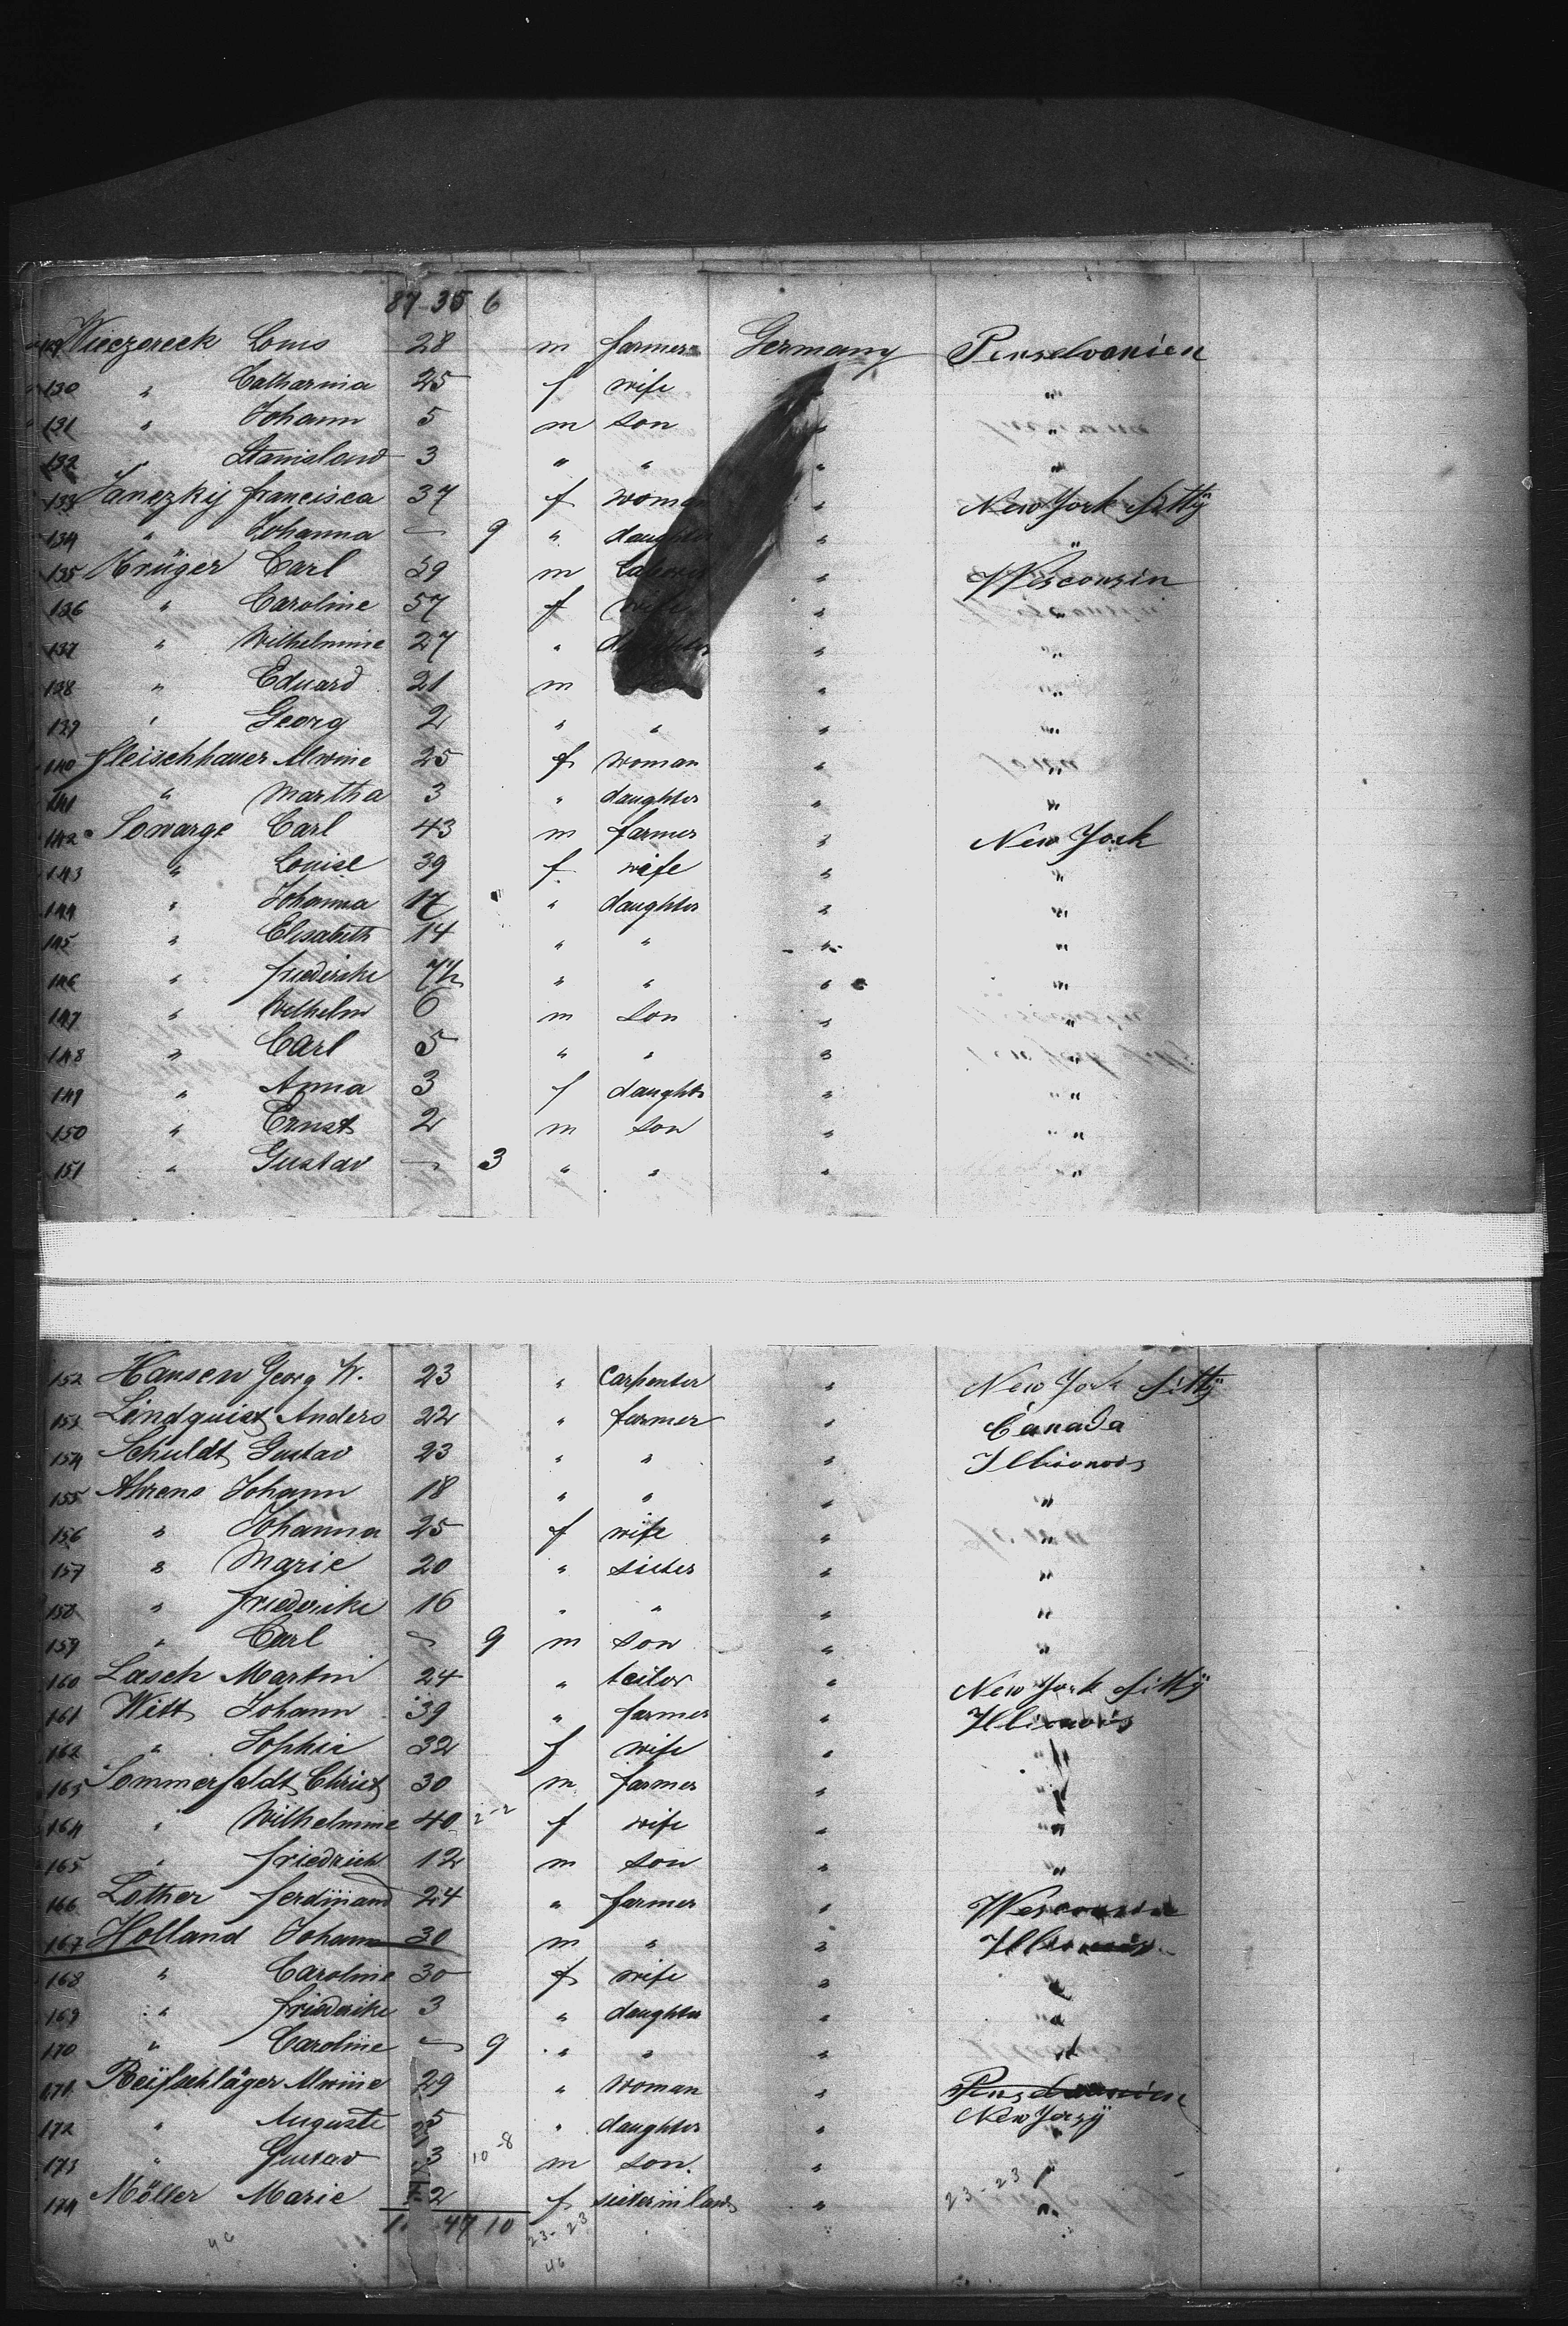 87-35 6
Wieczoreck Louis 28 m farmer Germany Penselvanien
130 " Catharina 25 f wife "
131 " Johann 5 m son " "
132 " Stanislaus 3 " " " "
133 Janezkij francisca 37 f woman " New York Sittÿ
134 " Johanna — 9 " daughter " "
135 Krüger Carl 59 m Laborer " Wisconsin
136 " Caroline 57 f wife " "
137 " Wilhelmine 27 " daughter " "
138 " Eduard 21 m " "
139 " Georg 2 " " " "
140 fleischhauer Alwine 25 f woman " "
141 " Martha 3 " daughter " "
142 Sowarge Carl 43 m farmer " New York
143 " Louise 39 f wife " "
144 " Johanna 17 " daughter " "
145 " Elisabeth 14 " " " "
146 " friedericke 7½ " " " "
147 " Wilhelm 6 m son " "
148 " Carl 5 " " " "
149 " Anna 3 f daughter " "
150 " Ernst 2 m son " "
151 " Gustav — 3 " " " "
152 Hansen Georg W. 23 " Carpenter " New York Sittÿ
153 Lindquist Anders 22 " farmer " Canada
154 Schuldt Gustav 23 " " " Illionois
155 Ahrens Johann 18 " " " "
156 " Johanna 25 f wife " "
157 " Marie 20 " sister " "
158 " friedericke 16 " " " "
159 " Carl — 9 m son " "
160 Lasch Martin 24 " teilor " New York Sittÿ
161 Witt Johann 39 " farmer " Illionois
162 " Sophie 32 f wife " "
163 Sommerfeldt Christ 30 m farmer " "
164 " Wilhelmine 40 2-2 f wife " "
165 " friedrich 12 m son " "
166 Lother ferdinand 24 " farmer " Wesconsin
167 Holland Johann 30 m " " Illionois
168 " Caroline 30 f wife " "
169 " friedericke 3 " daughter " "
170 " Caroline — 9 " " " "
171 Reifschläger Alwine 29 " woman " Penselvanien
New Yersÿ
172 " Auguste 5 " daughter " "
173 " Gustav 3 10-8 m son " "
174 Möller Marie 2 f sister in law " "
23-23
47 10
23-23
46
46